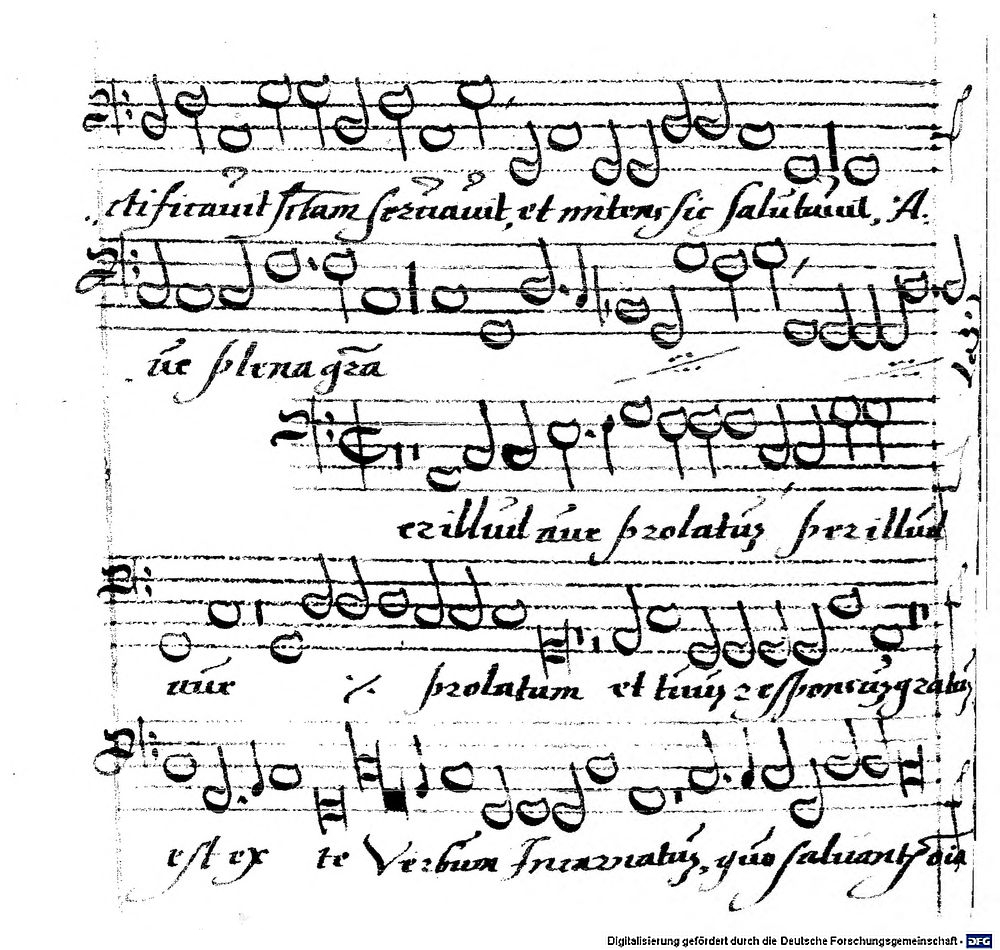 ctificauit sctam seruauit, et mitens sic salutauit, A.
ue plena gra
er illud aue prolatus per illud
aue ·/. prolatum et tuus responsus gratus
est ex te Verbum Incarnatus, quo saluant oia
Digitalisierung gefördert durch die Deutsche Forschungsgemeinschaft - DFG